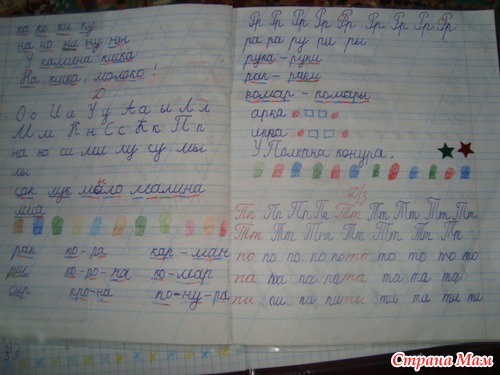 ка ко ки ку
на но ни ну ны
У калина киска
На киска, молоко!
О о И и У у А а ы Л л
М м К н С с К к П п
на ко си ми лу су мы
лы
сок лук мало малина
рак ко-ра кар-ман
рис ко-ро-на ко-мар
сыр кро-на по-ну-ра
Рр Рр Рр Рр Рр Рр Рр Рр Рр
ра ра ру ри ры
рука - руки
рак - раки
комар - комары
арка
икка
У Полкана конура.
д/з
Тт Пп Пр Пп Тт Тт Тт Тт Тт
Тт Тт Тт Тт Тт Тт Тт Тт
по по по по пото то то то то
па па па пата та та та
пи пи пи пити ти та ти ти
Страна Мам